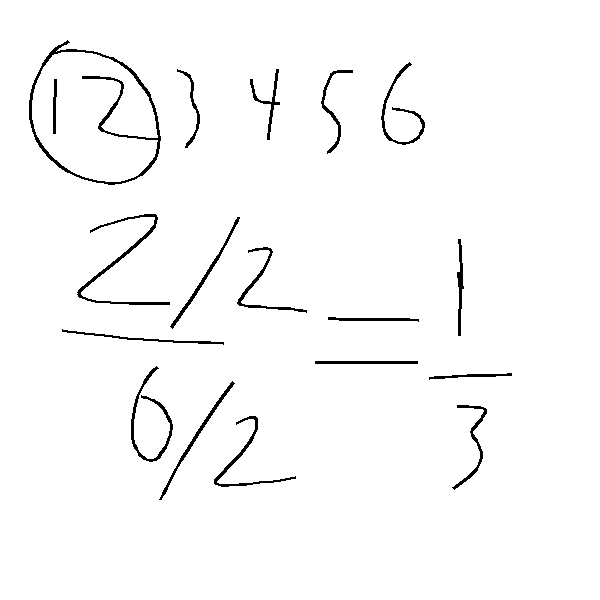 1 2 3 4 5 6
2/2
6/2
=
1
3